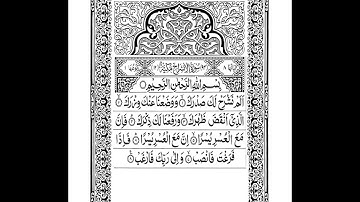 سورة الانشراح مكية
بِسْمِ اللّٰهِ الرَّحْمٰنِ الرَّحِيْمِ
اَلَمْ نَشْرَحْ لَكَ صَدْرَكَ ۙ وَوَضَعْنَا عَنْكَ وِزْرَكَ ۙ
الَّذِيْٓ اَنْقَضَ ظَهْرَكَ ۙ وَرَفَعْنَا لَكَ ذِكْرَكَ ۙ فَاِنَّ
مَعَ الْعُسْرِ يُسْرًا ۙ اِنَّ مَعَ الْعُسْرِ يُسْرًا ۙ فَاِذَا
فَرَغْتَ فَانْصَبْ ۙ وَاِلٰى رَبِّكَ فَارْغَبْ